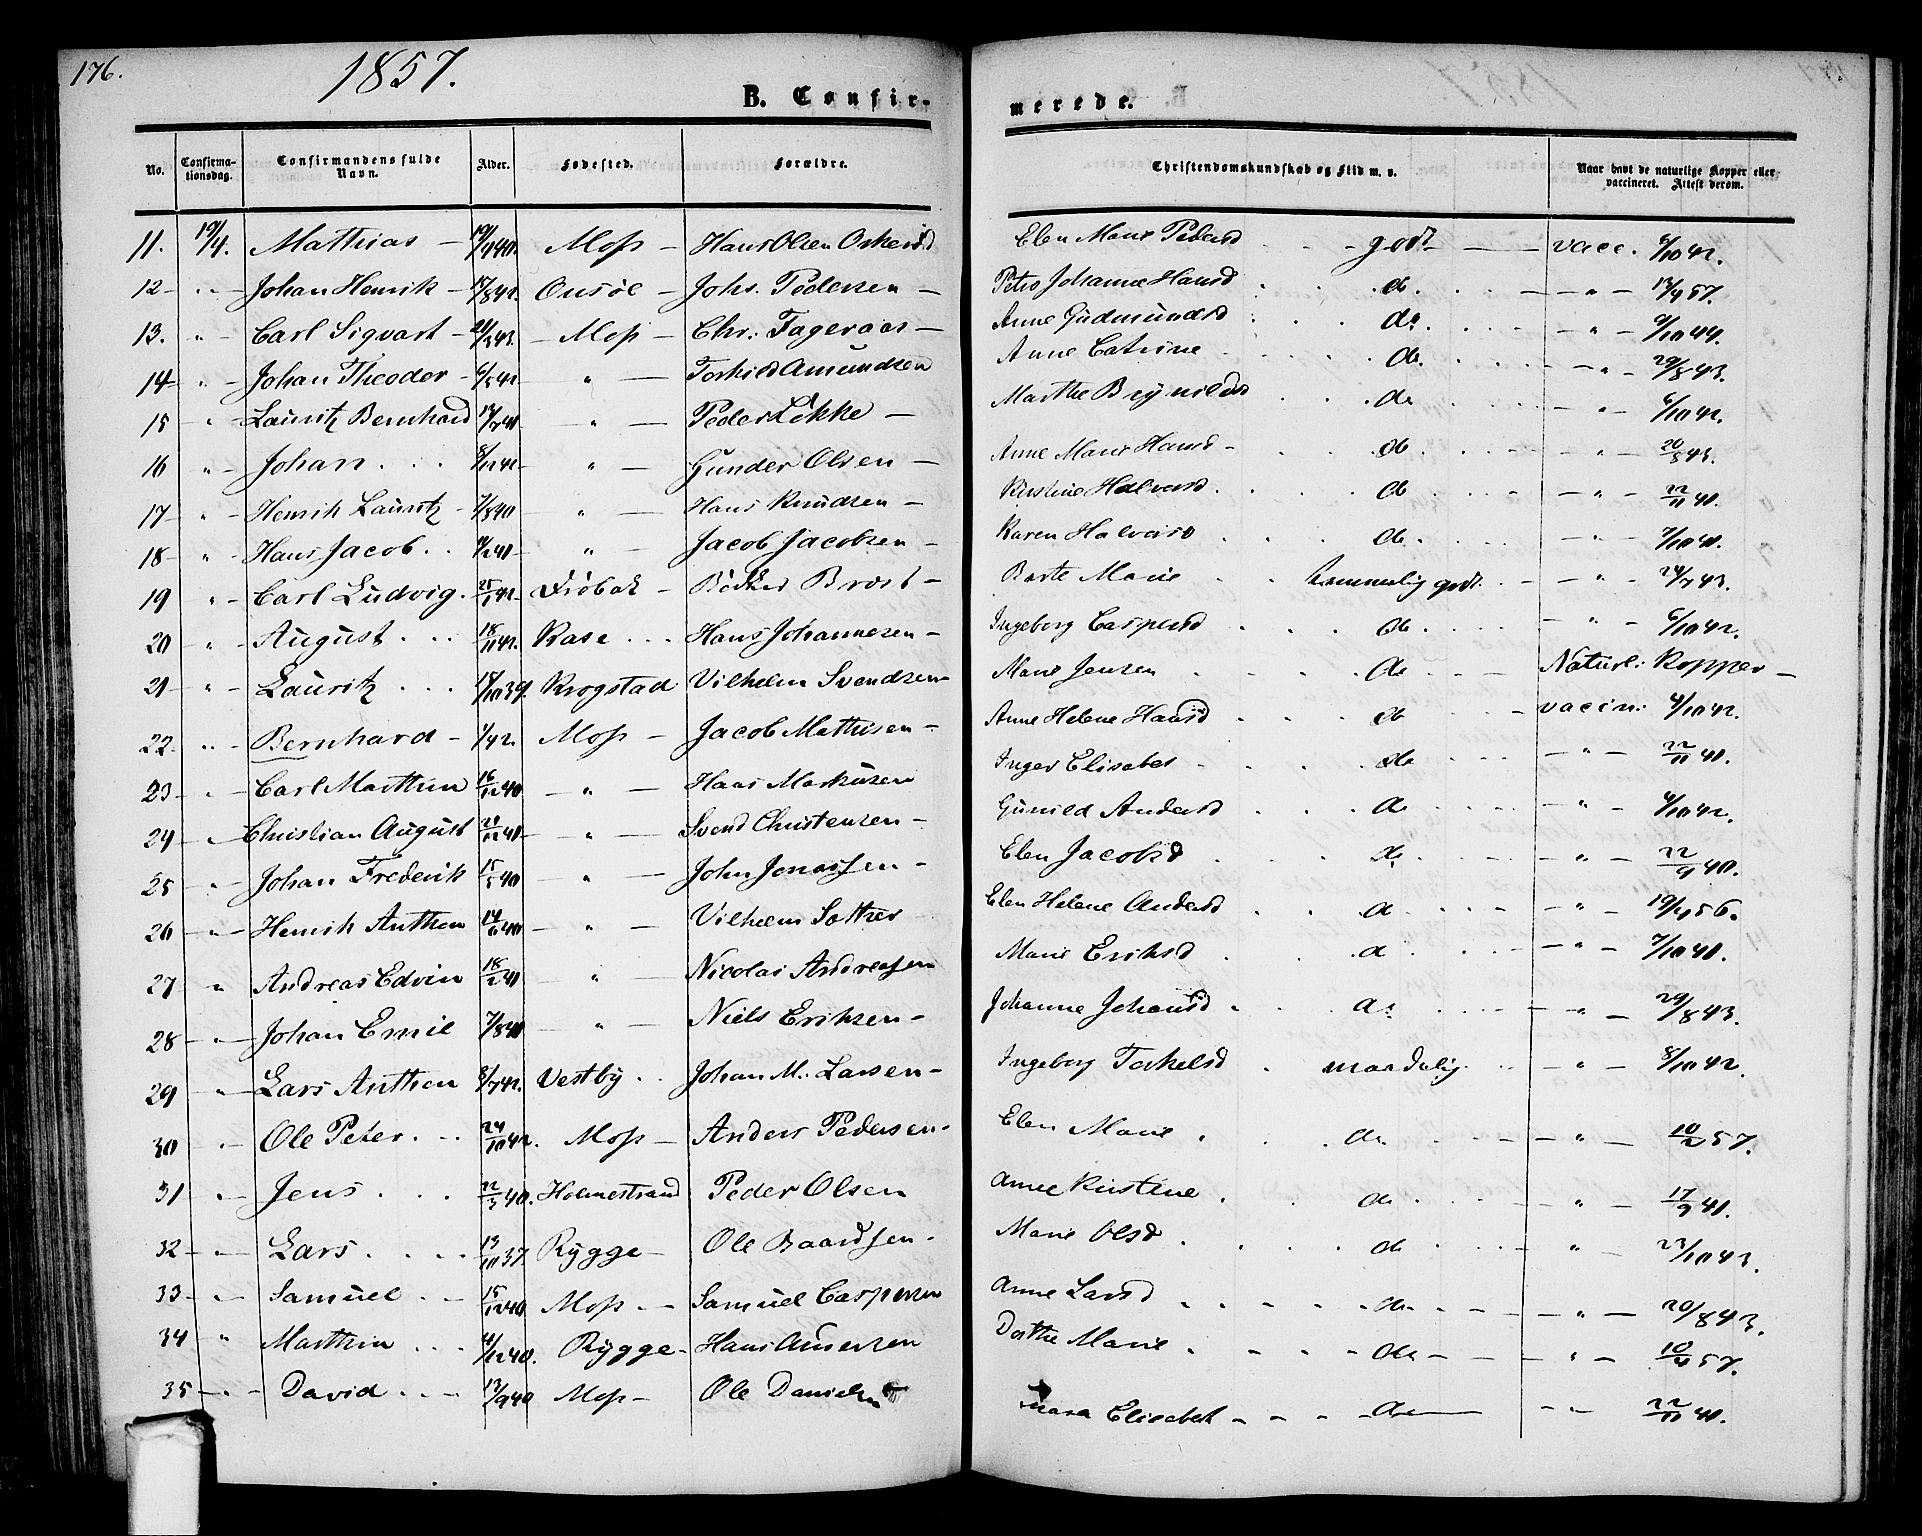 176.
1857.
B. Confir-
merede.
No.
Confirma-
tionsdag.
Confirmandens fulde
Navn.
Alder.
Fødested.
Forældre.
Christendomskundskab og Flid m. v.
Naar havt de naturlige Kopper eller
vaccineret. Attest derom.
11. 19/4. Mathias — Moss — Hans Olsen Elen Marie Pedersd godt — vacc. 6/10 42.
12 — " — Johan Henrik — 17/8 42. Onsöe — Johs. Pedersen — Petro Johanne Hansd do — " — 13/4 57.
13. " — Carl Sigvart — Moss — Chr: Fageraas — Anne Gudmundsd do. — " — 9/10 44.
14 — " — Johan Theodor — 6/5 42 " — Torkild Amundsen Anne Catrine do. — " — 29/8 43.
15 " — Lauritz Bernhard " — Peder Lökke — Marthe Brynildsd do — " — 6/10 42.
16 " — Johan . . . 8/12 42 " — Gunder Olsen — Anne Marie Hansd — do — " — 20/8 43.
17 — " — Henrik Lauritz — 7/8 40 " — Hans Knudsen — Kirstine Halvorsd. do — " — 22/11 41.
18 — " — Hans Jacob . . " — Jacob Jacobsen — Karen Halvorsd do. — " — 7/10 41.
19 " — Carl Ludvig. 25/1 42 — Dröbak — Bödker Brost — Barte Marie temmelig godt. — " — 24/7 43.
20 " — August . . . 18/11 42. Raae . . . Hans Johannesen — Ingeborg Caspersd do — " — 6/10 42.
21 — " — Lauritz . . . 18/10 39. Krogstad Vilhelm Svendsen — Marie Jensen do — Naturl: Kopper —
22. " — Bernhard — 1/1 42. Moss — Jacob Mathisen — Anne Helene Hansd do — vaccin: 4/10 42.
23 — " — Carl Marthin 16/12 40. — " — Hans Markusen Inger Elisabet do — " — 22/11 41.
24 — " — Christian August — " — Svend Christensen — Gunild Andersd do " — 4/10 42.
25 " — Johan Frederik 15/5 40 — " — John Jonassen — Elen Jacobsd do — " — 22/9 40.
26 — " — Henrik Anthon — " — Vilhelm Elen Helene Andersd do — " — 19/4 56.
27 " Andreas Edvin 18/2 41 — " — Nicolai Andreasen Marie Eriksd do — " — 7/10 41.
28 — " — Johan Emil 7/8 40 — " — Niels Eriksen — Johanne Johansd do. — " — 29/8 43.
29 " — Lars Anthon 8/7 42. Vestby . . Johan M. Larsen — Ingeborg Torkelsd maadelig. " — 8/10 42.
30 " — Ole Peter . . . 24/10 42. Moss — Anders Pedersen — Elen Marie do. — " — 10/2 57.
31 " — Jens . . . 22/3 40. Holmestrand Peder Olsen Anne Kirstine do — " — 17/9 41.
32 — " — Lars . . . . 13/10 37. Rygge — Ole Baardsen . Marie Olsd do " — 23/10 43.
33 — " — Samuel . — 15/12 40 Moss . — Samuel Caspersen Anne Larsd do — " — 20/8 43.
34 " Marthin . . . 4/12 40. Rygge — Hans Dorthe Marie do — " — 10/4 57.
35 — " — David . . . 13/9 40 Moss — Ole Danielsen Elisabeth do " — 22/11 41.